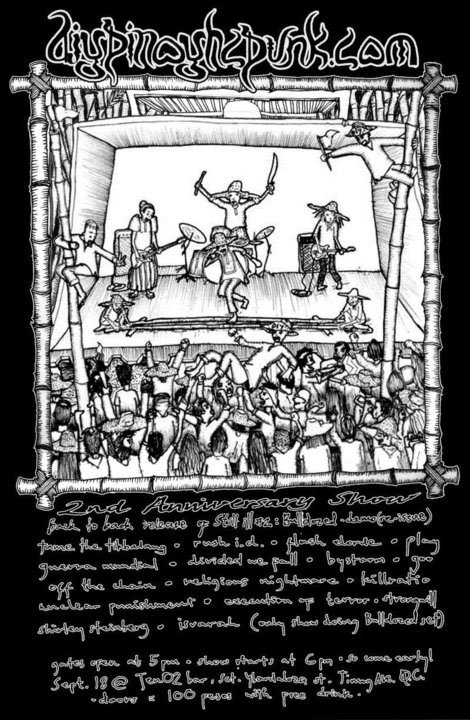 diypinoyhcpunk.com
2nd Anniversary Show
Back to back release of Still Ill #2 : Bulldozed - demo (reissue)
tame the tikbalang - rush i.d. - flash elorde - play
guerra mundial - divided we fall - bystorm - goo
off the chain - religious nightmare - killratio
nuclear punishment - execution of terror -
shirley steinberg - isvarah (only show doing Bulldozed set)
gates open at 5 pm - show starts at 6 pm - so come early!
Sept. 18 @ Ten02 bar, sct. Ybardolaza st. Timog Ave. Q.C.
- doors = 100 pesos with free drink -